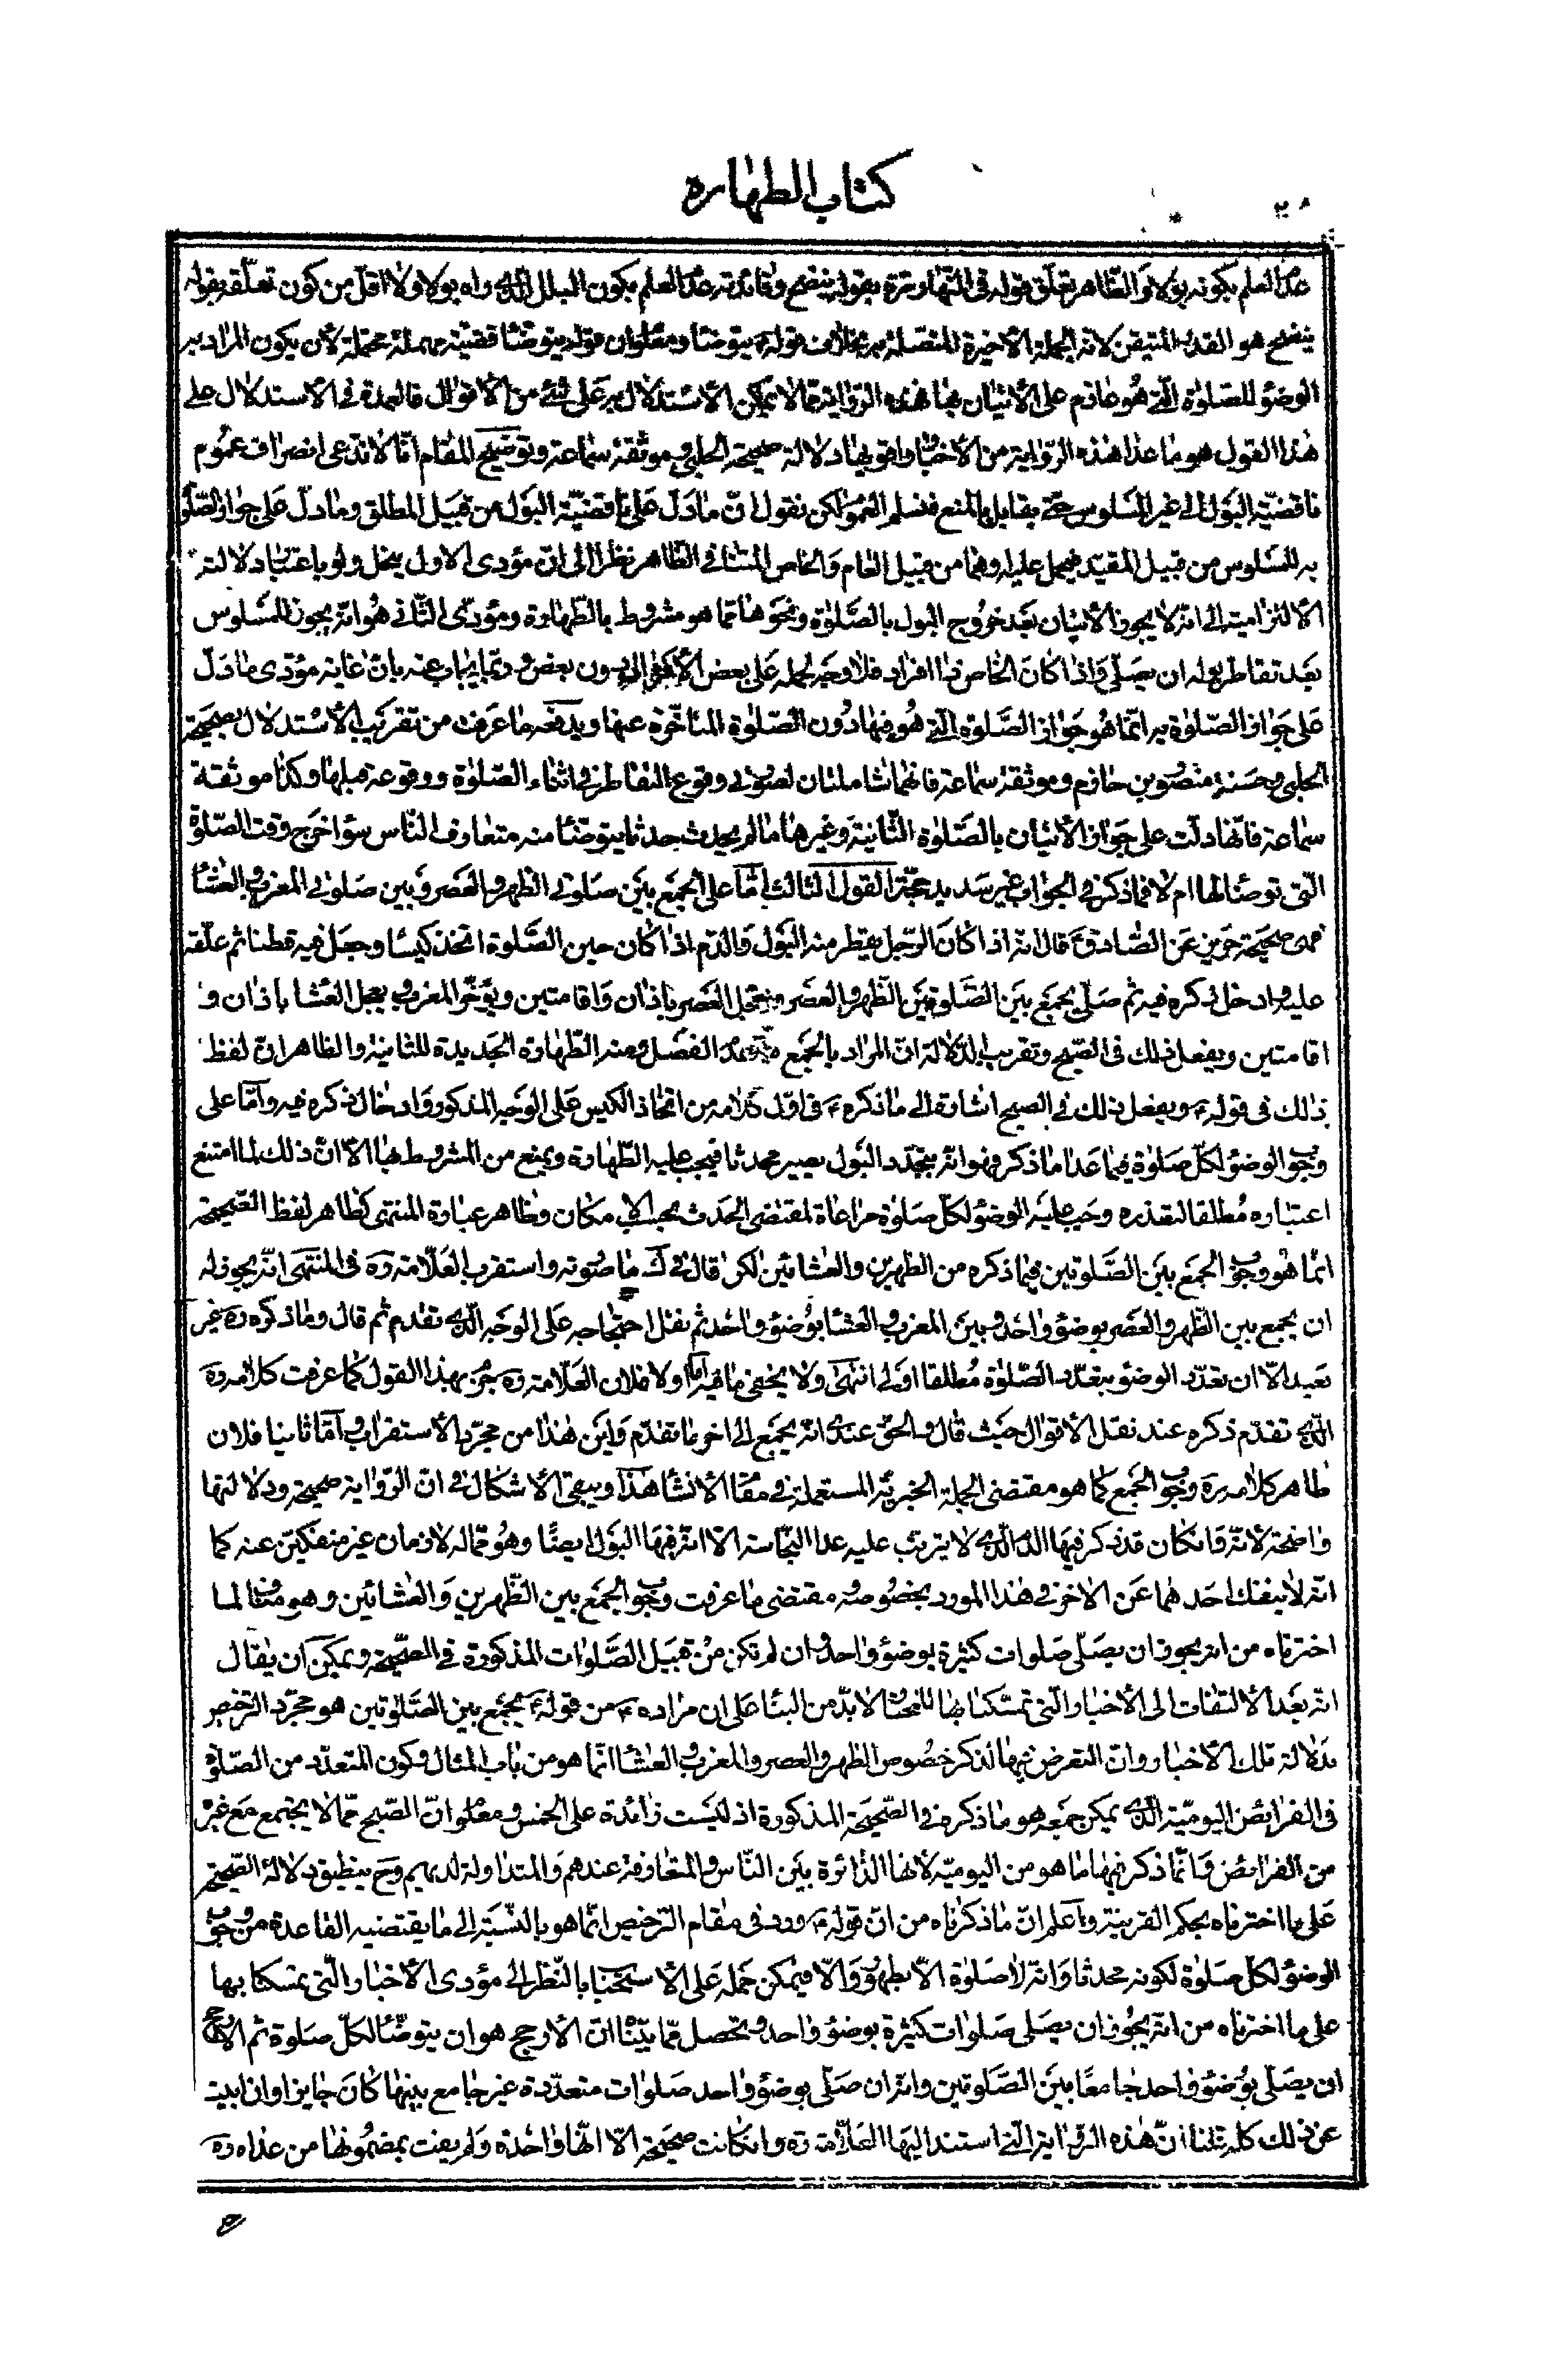 كتاب الطهارة
٢٨
عدم العلم بكونه بولا لان الظاهر تعلق قوله في النهار مرة بقوله ينضح وفائدته عدم العلم بكون البلل الذي راه بولا ولا اقل من كون تعلقه بقوله
ينضح هو القدر المتيقن لانه الجملة الأخيرة المتصلة به بخلاف قوله ع يتوضأ ومعلوم ان قوله يتوضأ قضية مهملة محتملة لأن يكون المراد به
الوضوء للصلوة التي هو عازم على الأتيان بها فهذه الرواية مما لا يمكن الأستدلال به على شئ من الأقوال فالعمدة في الاستدلال على
هذا القول هو ما عدا هذه الرواية من الأخبار واقويها دلالة صحيحة الحلبي وموثقة سماعة وتوضيح المقام انا لا ندعى انصراف عموم
ناقضية البول الى غير المسلوس حتى يقابل بالمنع فنسلم العموم لكن نقول ان ما دل على ناقضية البول من قبيل المطلق وما دل على جواز الصلوة
به للمسلوس من قبيل المقيد فيحمل عليه وهما من قبيل العام والخاص المتنافي الظاهر نظرا الى ان مؤدى الاول ينحل ولو باعتبار دلالته
الألتزامية الى انه لا يجوز الأتيان بعد خروج البول بالصلوة ونحوها مما هو مشروط بالطهارة ومؤدى الثاني هو انه يجوز للمسلوس
بعد تقاطر بوله ان يصلي واذا كان الخاص ذا افراد فلا وجه لحمله على بعض الأفراد دون بعض وربما يجاب عنه بان غاية مؤدى ما دل
على جواز الصلوة به انما هو جواز الصلوة التي هو فيها دون الصلوة المتأخرة عنها ويدفعه ما عرفت من تقريب الأستدلال بصحيحة
الحلبي وحسنة منصور بن حازم وموثقة سماعة فانهما شاملتان لصورتي وقوع التقاطر في اثناء الصلوة ووقوعه قبلها وكذا موثقة
سماعة فانها دلت على جواز الأتيان بالصلوة الثانية وغيرها ما لم يحدث حدثا يتوضأ منه متعارف الناس سواء خرج وقت الصلوة
التي توضأ لها ام لا فما ذكر في الجواب غير سديد حجة القول الثالث اما على الجمع بين صلوتي الظهر والعصر وبين صلوتي المغرب والعشاء
فهي صحيحة حريز عن الصادق ع قال انه اذا كان الرجل يقطر منه البول والدم اذا كان حين الصلوة اتخذ كيسا وجعل فيه قطنا ثم علقه
عليه وادخل ذكره فيه ثم صلى يجمع بين الصلوتين الظهر والعصر ويعجل العصر باذان واقامتين ويؤخر المغرب ويعجل العشا باذان و
اقامتين ويفعل ذلك في الصبح وتقريب الدلالة ان المراد بالجمع عدم الفصل ومنه الطهارة الجديدة للثانية والظاهر ان لفظ
ذلك في قوله ع ويفعل ذلك في الصبح اشارة الى ما ذكره ع في اول كلامه من اتخاذ الكيس على الوجه المذكور وادخال ذكره فيه واما على
وجوب الوضوء لكل صلوة فيما عدا ما ذكر فهو انه بتجدد البول يصير محدثا فيجب عليه الطهارة ويمنع من المشروط بها الا ان ذلك لما امتنع
اعتباره مطلقا لتعذره وجب عليه الوضوء لكل صلوة مراعاة لمقتضى الحدث بحسب الامكان وظاهر عبارة المنتهى كظاهر لفظ الصحيحة
انما هو وجوب الجمع بين الصلوتين فيما ذكره من الظهرين والعشائين لكن قال في ك ما صورته واستقرب العلامة ره في المنتهى انه يجوز له
ان يجمع بين الظهر والعصر بوضوء واحد وبين المغرب والعشا بوضوء واحد ثم نقل احتجاجه على الوجه الذي تقدم ثم قال وما ذكره ره غير
بعيد الا ان تعدد الوضوء بتعدد الصلوة مطلقا اولى انتهى ولا يخفى ما فيه اما اولا فلان العلامة ره جزم بهذا القول كما عرفت كلامه ره
الذي تقدم ذكره عند نقل الأقوال حيث قال والحق عندي انه يجمع الى اخر ما تقدم واين هذا من مجرد الأستقراب واما ثانيا فلان
ظاهر كلامه ره وجوب الجمع كما هو مقتضى الجملة الخبرية المستعملة في مقام الأنشاء هذا ويبقى الأشكال في ان الرواية صحيحة ودلالتها
واضحة لأنه وان كان قد ذكر فيها الدم الذي لا يترتب عليه عدا النجاسة الا انه فيها البول ايضا وهو مما له لازمان غير منفكين عنه كما
انه لا ينفك احدهما عن الاخر في هذا المورد بخصوصه ومقتضى ما عرفت وجوب الجمع بين الظهرين والعشائين وهو مناف لما
اخترناه من انه يجوز ان يصلي صلوات كثيرة بوضوء واحد وان لم تكن من قبيل الصلوات المذكورة في الصحيحة ويمكن ان يقال
انه بعد الألتفات الى الأخبار التي تمسكنا بها للمختار لا بد من البناء على ان مراده ع من قوله ع يجمع بين الصلوتين هو مجرد الترخيص
بدلالة تلك الأخبار وان التعرض فيها لذكر خصوص الظهر والعصر والمغرب والعشاء انما هو من باب المثال وكون المتعدد من الصلوة
في الفرائض اليومية الذي يمكن جمعه هو ما ذكر في الصحيحة المذكورة اذ ليست زائدة على الخمس ومعلوم ان الصبح مما لا يجتمع مع غيره
من الفرائض وانما ذكر فيها ما هو من اليومية لانها الدائرة بين الناس والمتعارفة عندهم والمتداولة لديهم وح ينطبق دلالة الصحيحة
على ما اخترناه بحكم القرينة واعلم ان ما ذكرناه من ان قوله ع ورد في مقام الترخيص انما هو بالنسبة الى ما يقتضيه القاعدة من وجوب
الوضوء لكل صلوة لكونه محدثا وانه لا صلوة الا بطهور والا فيمكن حمله على الأستحباب بالنظر الى مؤدى الأخبار التي تمسكنا بها
على ما اخترناه من انه يجوز ان يصلى صلوات كثيرة بوضوء واحد وتحصل مما بينا ان الأرجح هو ان يتوضأ لكل صلوة ثم الارجح
ان يصلى بوضوء واحد جامعا بين الصلوتين وانه ان صلى بوضوء واحد صلوات متعددة غير جامع بينها كان جايزا وان ابيت
عن ذلك كله قلنا ان هذه الرواية التي استند اليها العلامة ره وان كانت صحيحة الا انها واحدة ولم يفت بمضمونها من عداه ره